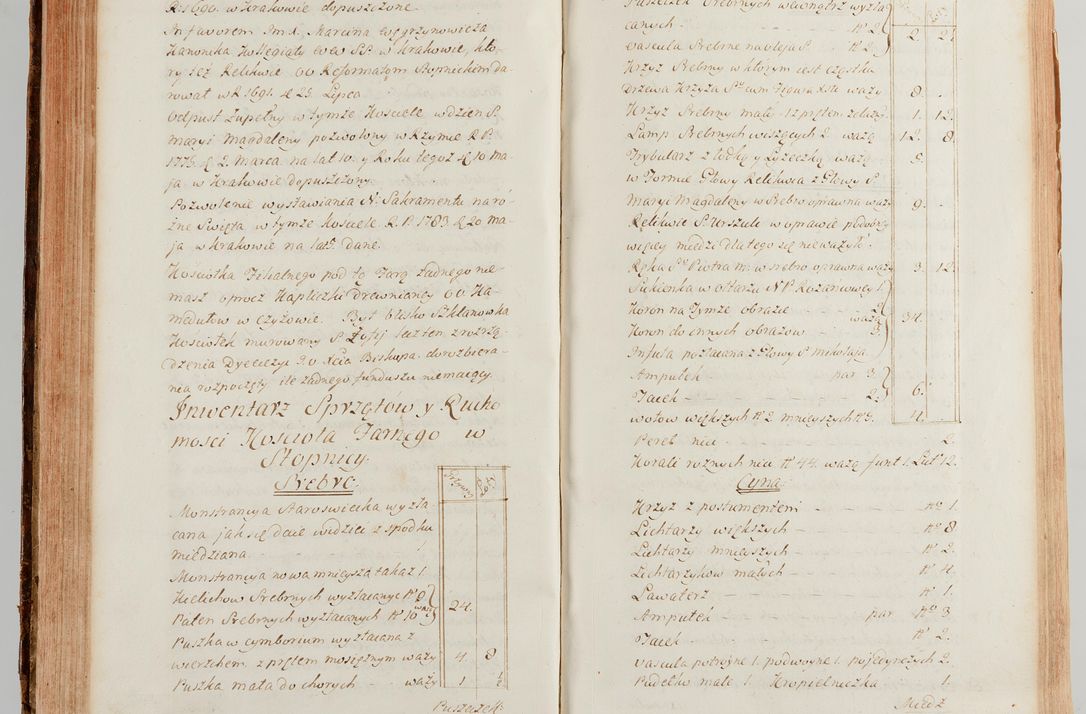 R. 1690. w Krakowie dopuszczone.
In favorem Jmci. Marcina Węgrzynowicza
Kanonika Kollegiaty WW. SS. w Krakowie, któ-
ry też Relikwie OO Reformatom Stopnickim da-
rował w R. 1691. d. 23. Lipca
Odpust Zupełny w tymże Kosciele w dzień S.
Maryi Magdaleny pozwolony w Rzymie R. P.
1775. d. 2. Marca na lat 10. y Roku tegoż d. 10 Ma-
ja w Krakowie dopuszczony.
Pozwolenie wystawiania N. Sakramentu na ró-
żne Święta w tymże kosciele R. P. 1783. d. 20. Ma-
ja w Krakowie na lat 7. dane.
Kościołka Filialnego pod tę Farę żadnego nie-
masz oprocz Kapliczki drewnianey OO Ka-
medułow w Czyżowie. Był blisko Szklanowka
Kościołek murowany S. Zofij lecz ten z rozrzą-
dzenia Dyecezyi J. O. Xcia Biskupa do rozbiera-
nia rozpoczęty ile żadnego funduszu niemaiący.
Inwentarz Sprzętów y Rucho
mosci Kościoła Farnego w
Stopnicy.
Srebro.
Grzywn
Łoty
Monstrancya Staroswiecka wyzła-
cana jak się daie widzieć z spodku
miedziana
Monstrancya nowa mnieysza takaż 1.
Kielichow Srebrnych wyzłacanych N. 8
Paten Srebrnych wyzłacanych N. 10 ważą 24.
Puszka w cymborium wyzłacana z
wierzchem z prętem mosiężnym waży 4. 8
Puszka mała do chorych - waży 1 ½
Puszeczek
Puszeczek Srebrnych wewnątrz wyzła
canych - - N. 2.
Vascula Srebrne na oleja S. N. 2. 2. 21.
Krzyż Srebrny w ktorym iest cząstka
Drzewa Krzyża S. cum Figura Xti waży 8. .
Krzyż Srebrny mały z prętem żelazny 1. 12.
Lamp Srebrnych wiszących 2. ważą 12. 8.
Trybularz z łodką y Łyżeczką ważą
w Formie Głowy Relikwia z Głowy S.
Maryi Magdaleny w Srebro oprawna waży 9. -
Relikwie S. Urszule w oprawie podobney
więcey miedzi dla tego się nie ważyły.
Ręka S. Piotra M. w srebro oprawna waży 3. 12.
Sukienka w Ołtarzu N. P. Rożancowey 1.
Koron na Tymże obrazie - - 2.
Koron do innych obrazow - - ważą 34.
Infuła pozłacana z Głowy S. Mikołaja.
Ampułek - - par 3.
Tacek - - 2. 6.
Wotow większych N. 2. mnieyszych N. 3. 4.
Pereł nici - - 2.
Korali rożnych nici N. 44. ważą funt 1. Łut 12.
Cyna.
Krzyż z postumentem - N. 1.
Lichtarzy większych - - N. 8
Lichtarzy mnieyszych - - N. 2.
Lichtarzykow małych - - N. 4.
Lawaterz - - N. 1.
Ampułek - - par N. 3
Tacek - - N. 2.
Vascula potroyne 1. podwoyne 1. pojedynczych 2.
Pudełko małe 1. Kropielniczka - 1.
Miedz